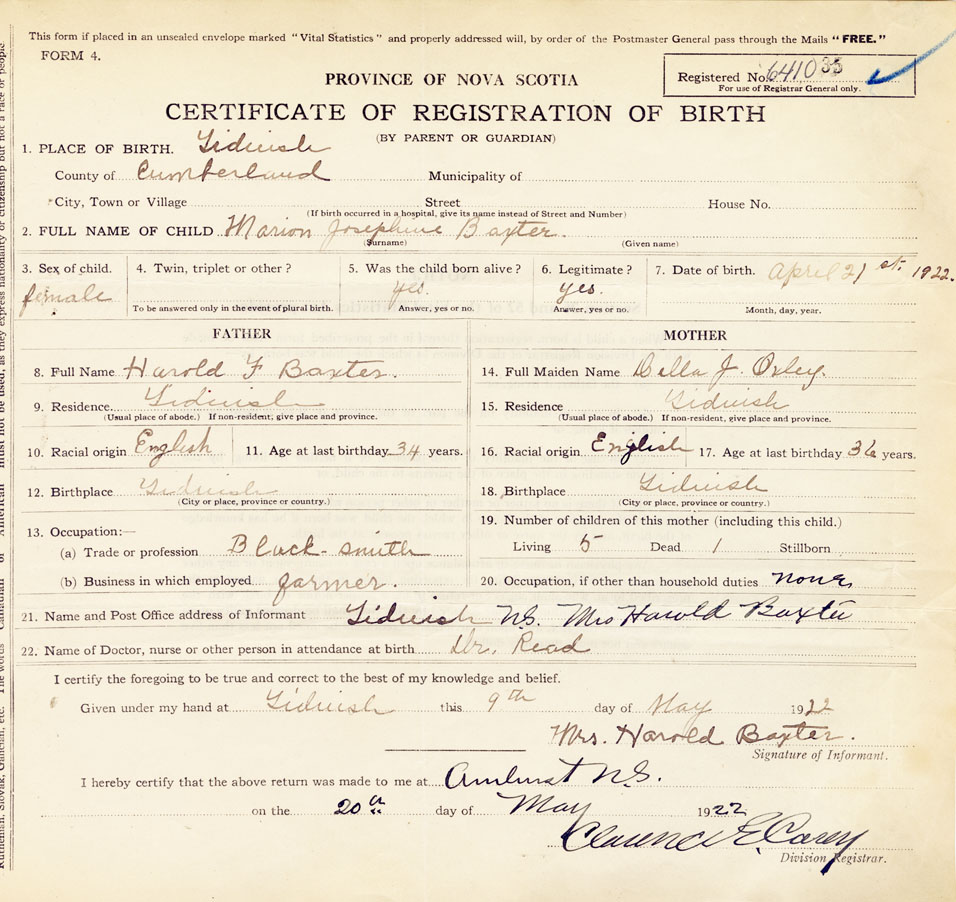 This form if placed in an unsealed envelope marked "Vital Statistics" and properly addressed will, by order of the Postmaster General pass through the Mails "FREE."
FORM 4.
PROVINCE OF NOVA SCOTIA
Registered No. 641035
For use of Registrar General only.
CERTIFICATE OF REGISTRATION OF BIRTH
(BY PARENT OR GUARDIAN)
1. PLACE OF BIRTH. Tidnish
County of Cumberland Municipality of
City, Town or Village Street House No.
(If birth occurred in a hospital, give its name instead of Street and Number)
2. FULL NAME OF CHILD Marion Josephine Baxter.
(Surname) (Given name)
3. Sex of child. 4. Twin, triplet or other? 5. Was the child born alive? 6. Legitimate? 7. Date of birth. April 21st. 1922.
female yes. yes.
To be answered only in the event of plural birth. Answer, yes or no. Answer, yes or no. Month, day, year.
FATHER MOTHER
8. Full Name Harold F Baxter. 14. Full Maiden Name Della J. Oxley.
9. Residence Tidnish 15. Residence Tidnish
(Usual place of abode.) If non-resident, give place and province. (Usual place of abode.) If non-resident, give place and province.
10. Racial origin English 11. Age at last birthday 34 years. 16. Racial origin English 17. Age at last birthday 36 years.
12. Birthplace Tidnish 18. Birthplace Tidnish
(City or place, province or country.) (City or place, province or country.)
13. Occupation:— 19. Number of children of this mother (including this child.)
(a) Trade or profession Black-smith Living 5 Dead 1 Stillborn
(b) Business in which employed farmer. 20. Occupation, if other than household duties none
21. Name and Post Office address of Informant Tidnish N.S. Mrs Harold Baxter
22. Name of Doctor, nurse or other person in attendance at birth Dr. Read
I certify the foregoing to be true and correct to the best of my knowledge and belief.
Given under my hand at Tidnish this 9th day of May 1922
Mrs. Harold Baxter.
Signature of Informant.
I hereby certify that the above return was made to me at Amherst N.S.
on the 20th day of May 1922
Clarence E. Carey
Division Registrar.
must not be used, as they express nationality or citizenship but not a race or people
The words Canadian or American
Ruthenian, Slovak, Galician, etc.